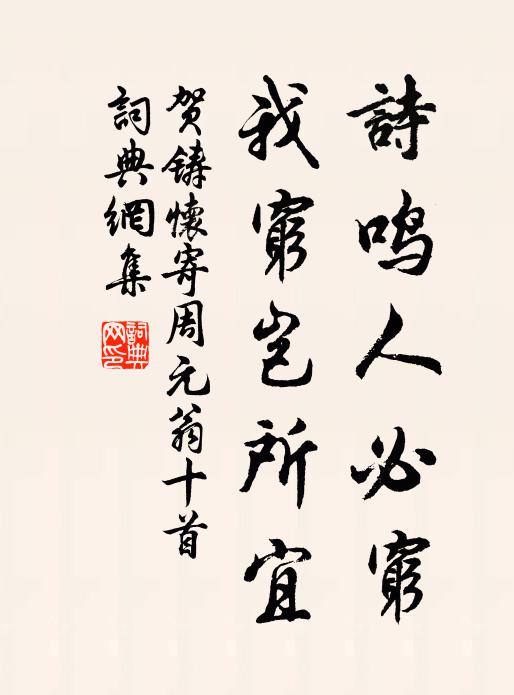 詩鳴人必窮
我窮豈所宜
賀鑄懷寄周元翁十首
詞典網集
詞典網印